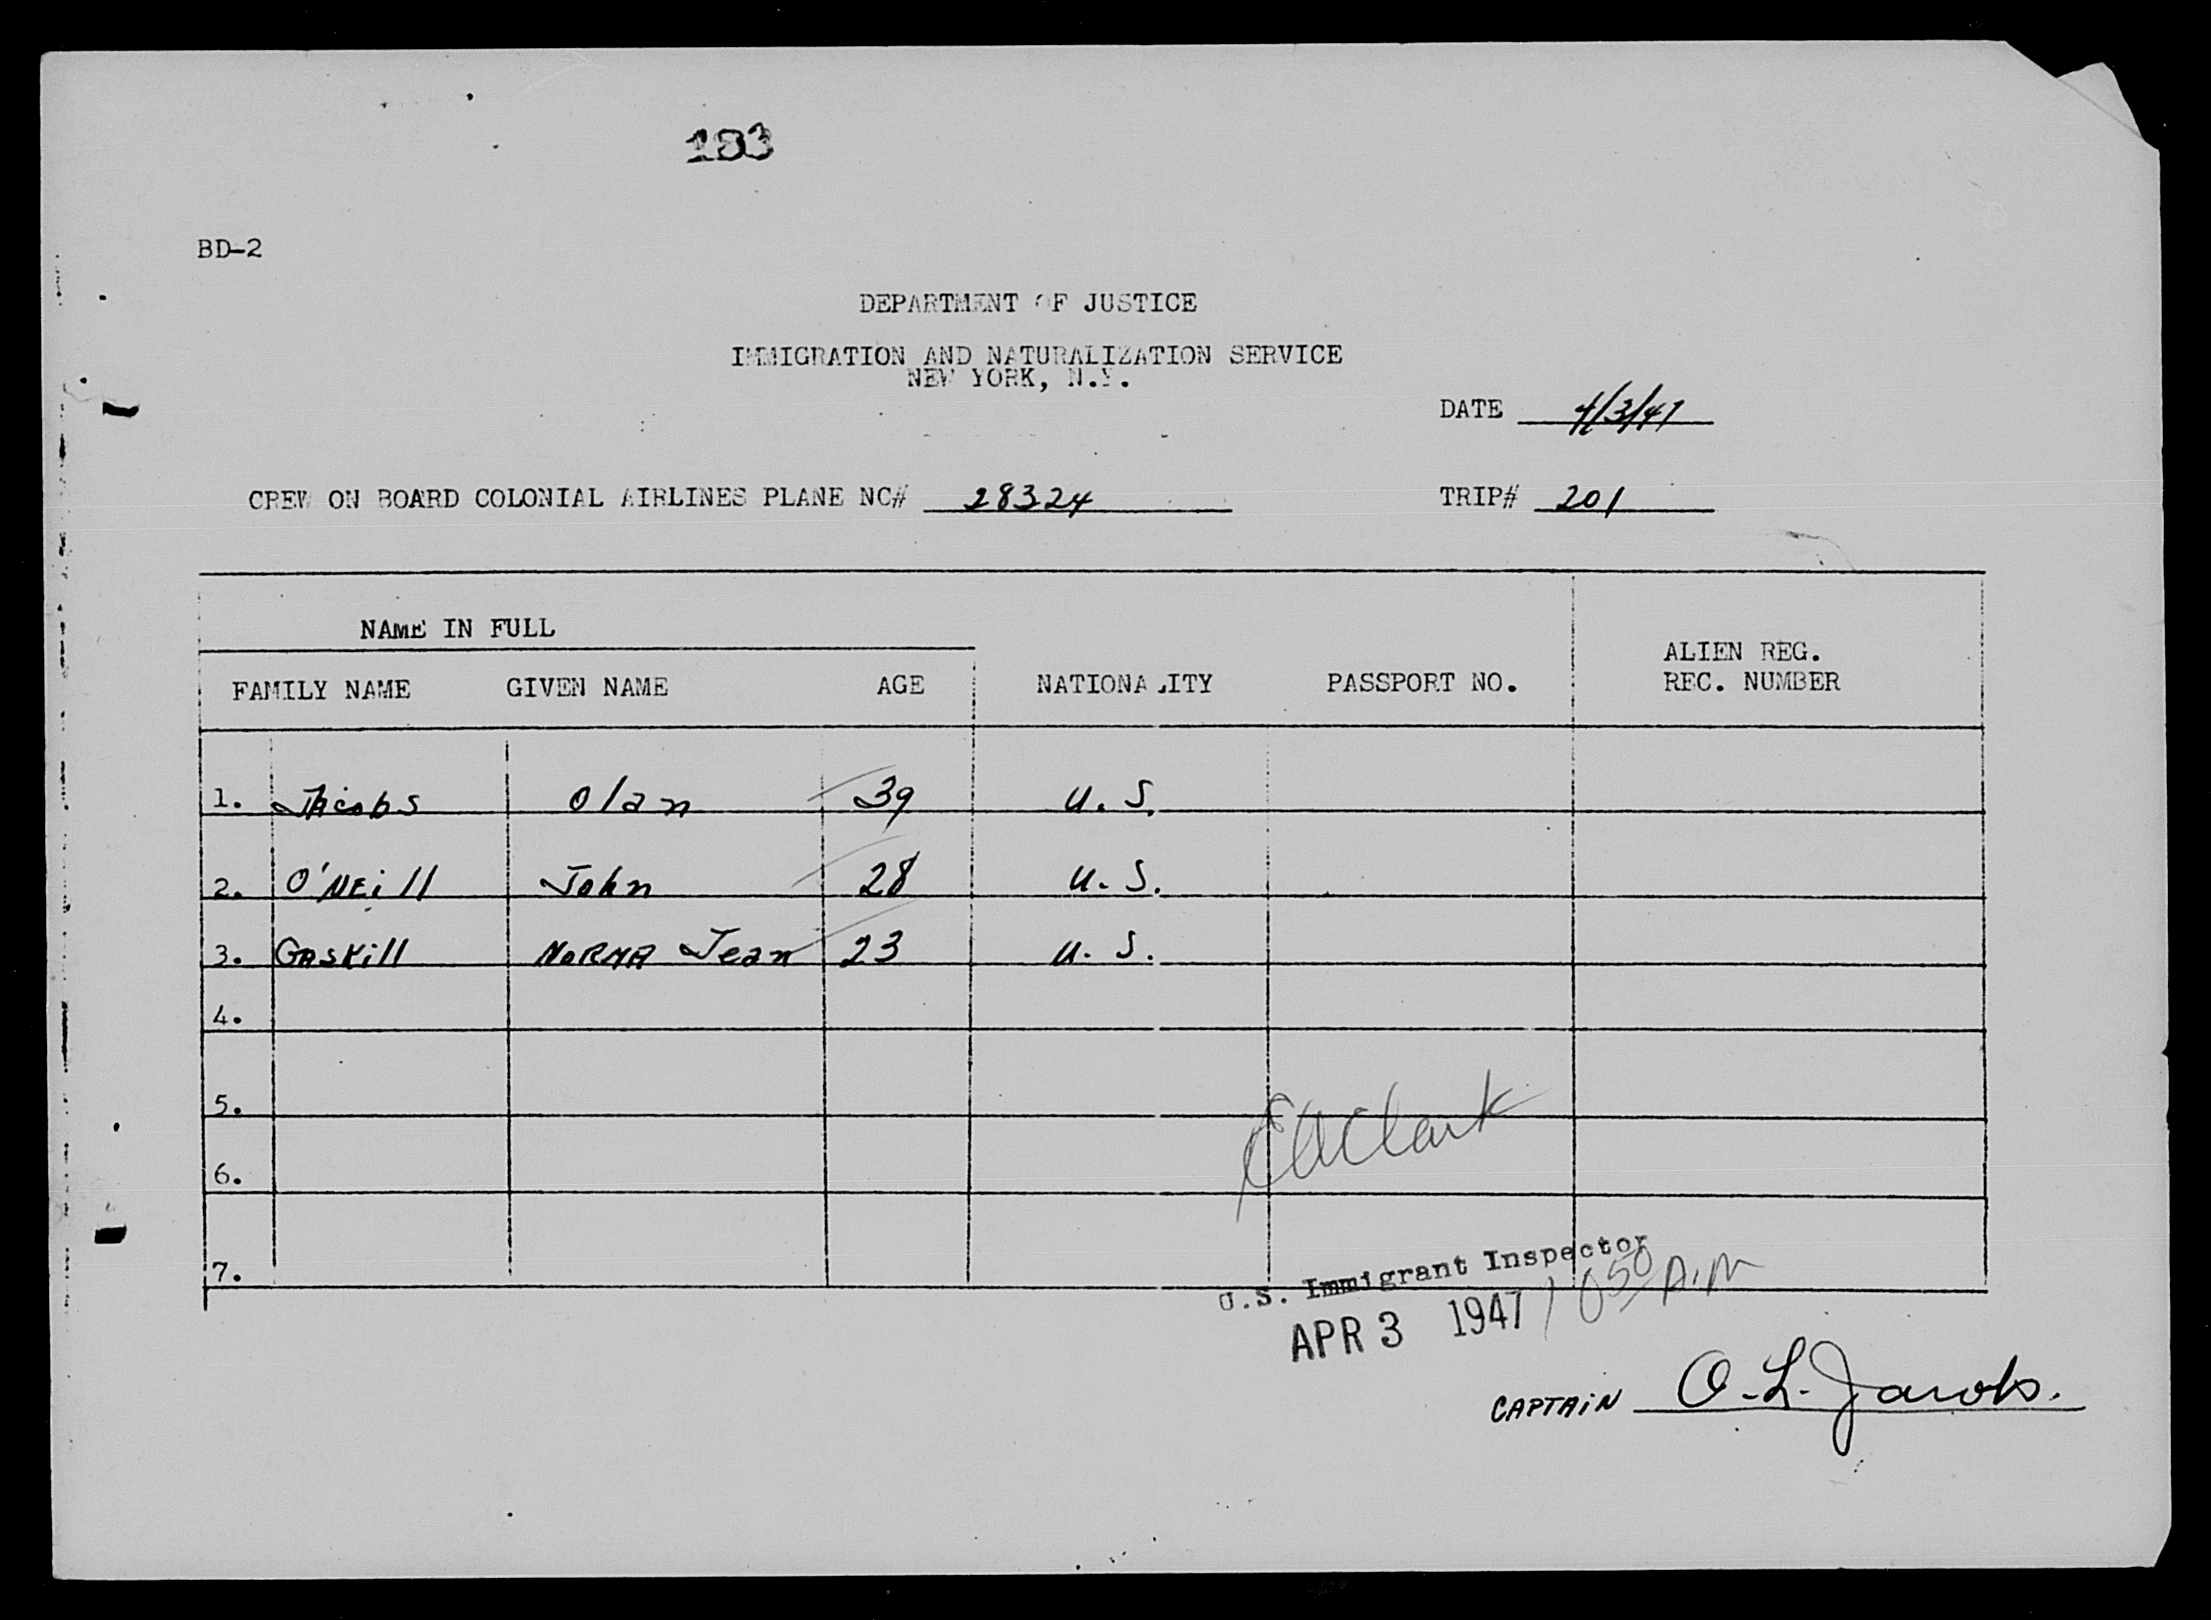 183
BD-2
DEPARTMENT OF JUSTICE
IMMIGRATION AND NATURALIZATION SERVICE
NEW YORK, N.Y.
DATE 4/3/47
CREW ON BOARD COLONIAL AIRLINES PLANE NC# 28324 TRIP# 201
NAME IN FULL
FAMILY NAME GIVEN NAME AGE NATIONALITY PASSPORT NO. ALIEN REG. REC. NUMBER
1. Jacobs Olan 39 U.S.
2. O'Neill John 28 U.S.
3. Gaskill Norma Jean 23 U.S.
4.
5.
6.
7.
Clark
U.S. Immigrant Inspector
APR 3 1947 1050 A.M
CAPTAIN O.L. Jacobs.